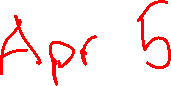 Apr 5